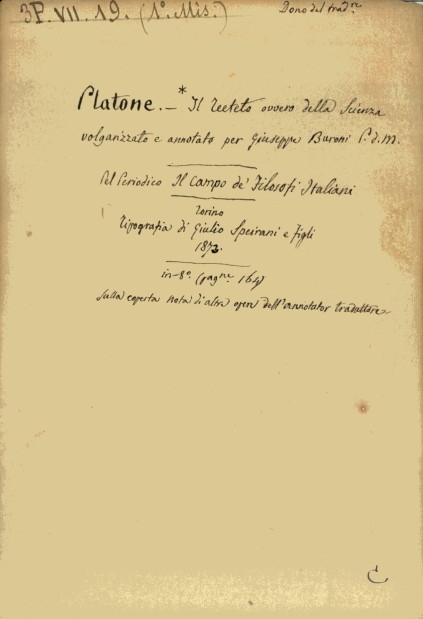 3P. VII. 19. (1º. Mis.)
Dono del trad.re
Platone. — * Il Teeteto ovvero della Scienza
volgarizzato e annotato per Giuseppe Buroni P. d. M.
Pel Periodico Il Campo de' Filosofi Italiani
Torino
Tipografia di Giulio Speirani e figli
1873.
in-8º. (pag.ne 164)
sulla coperta nota di altre opere dell'annotator traduttore
C